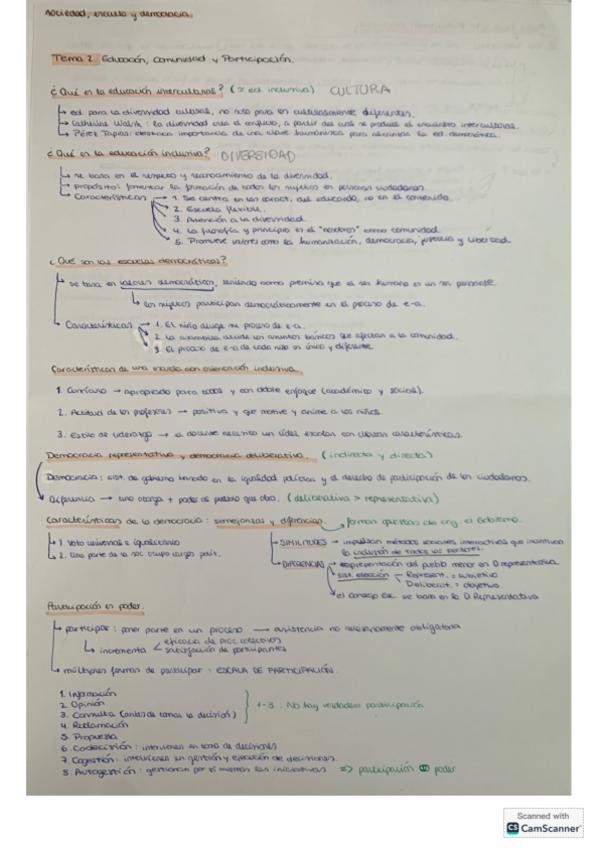 sociedad, escuela y democracia.
Tema 2. Educación, Comunidad y Participación.
¿Qué es la educación intercultural? (≥ ed. inclusiva) CULTURA
→ ed. para la diversidad cultural, no solo para los culturalmente diferentes.
→ Catherine Walsh: la diversidad crea el conflicto, a partir del cual se produce el encuentro intercultural.
→ Pérez Tapias: destaca importancia de una clave humanística para afrontar la ed. democrática.
¿Qué es la educación inclusiva? DIVERSIDAD
→ se basa en el respeto y reconocimiento de la diversidad.
→ propósito: fomentar la formación de todos los sujetos en personas ciudadanas.
→ Características → 1. Se centra en las caract. del educando, no en el contenido.
2. Escuela flexible.
3. Atención a la diversidad.
4. La filosofía y principio es el "nosotros" como comunidad.
5. Promueve valores como la humanización, democracia, justicia y libertad.
¿Qué son las escuelas democráticas?
→ se basa en valores democráticos, teniendo como premisa que el ser humano es un ser pensante.
→ los sujetos participan democráticamente en el proceso de e-a.
→ Características → 1. El niño dirige su proceso de e-a.
2. La asamblea decide los asuntos básicos que afectan a la comunidad.
3. El proceso de e-a de cada niño es único y diferente.
Características de una escuela con orientación inclusiva.
1. Currículo → apropiado para todos y con doble enfoque (académico y social).
2. Actitud de los profesores → positiva y que motive y anime a los niños.
3. Estilo de liderazgo → el docente escolar con características.
Democracia representativa y democracia deliberativa. (indirecta y directa)
Democracia: sist. de gobierno basado en la igualdad política y el derecho de participación de los ciudadanos.
Diferencia → una otorga + poder al pueblo que otra. (deliberativa > representativa)
Características de la democracia: semejanzas y diferencias. → formas opuestas de org. el Gobierno.
→ 1. Voto universal e igualitario
→ 2. Una parte de la soc. ocupa cargos polít.
→ SIMILITUDES → impulsan métodos sociales interactivos que incentiven la inclusión de todos los sectores.
→ DIFERENCIAS → representación del pueblo menor en D. representativa.
→ sist. elección - Represent. = subjetivo
Deliberat. = objetivo.
→ el consejo esc. se basa en la D. Representativa
Participación es poder.
→ participar: tomar parte en un proceso → asistencia no necesariamente obligatoria
→ incrementa < eficacia de colectivos
satisfacción de participantes
→ múltiples formas de participar: ESCALA DE PARTICIPACIÓN.
1. Información
2. Opinión
3. Consulta (antes de tomar la decisión)
1-3: No hay verdadera participación
4. Reclamación
5. Propuesta
6. Codecisión: intervienen en toma de decisiones
7. Cogestión: intervienen en gestión y ejecución de decisiones.
8. Autogestión: gestionan por sí mismos las iniciativas => participación poder
Scanned with
CS CamScanner